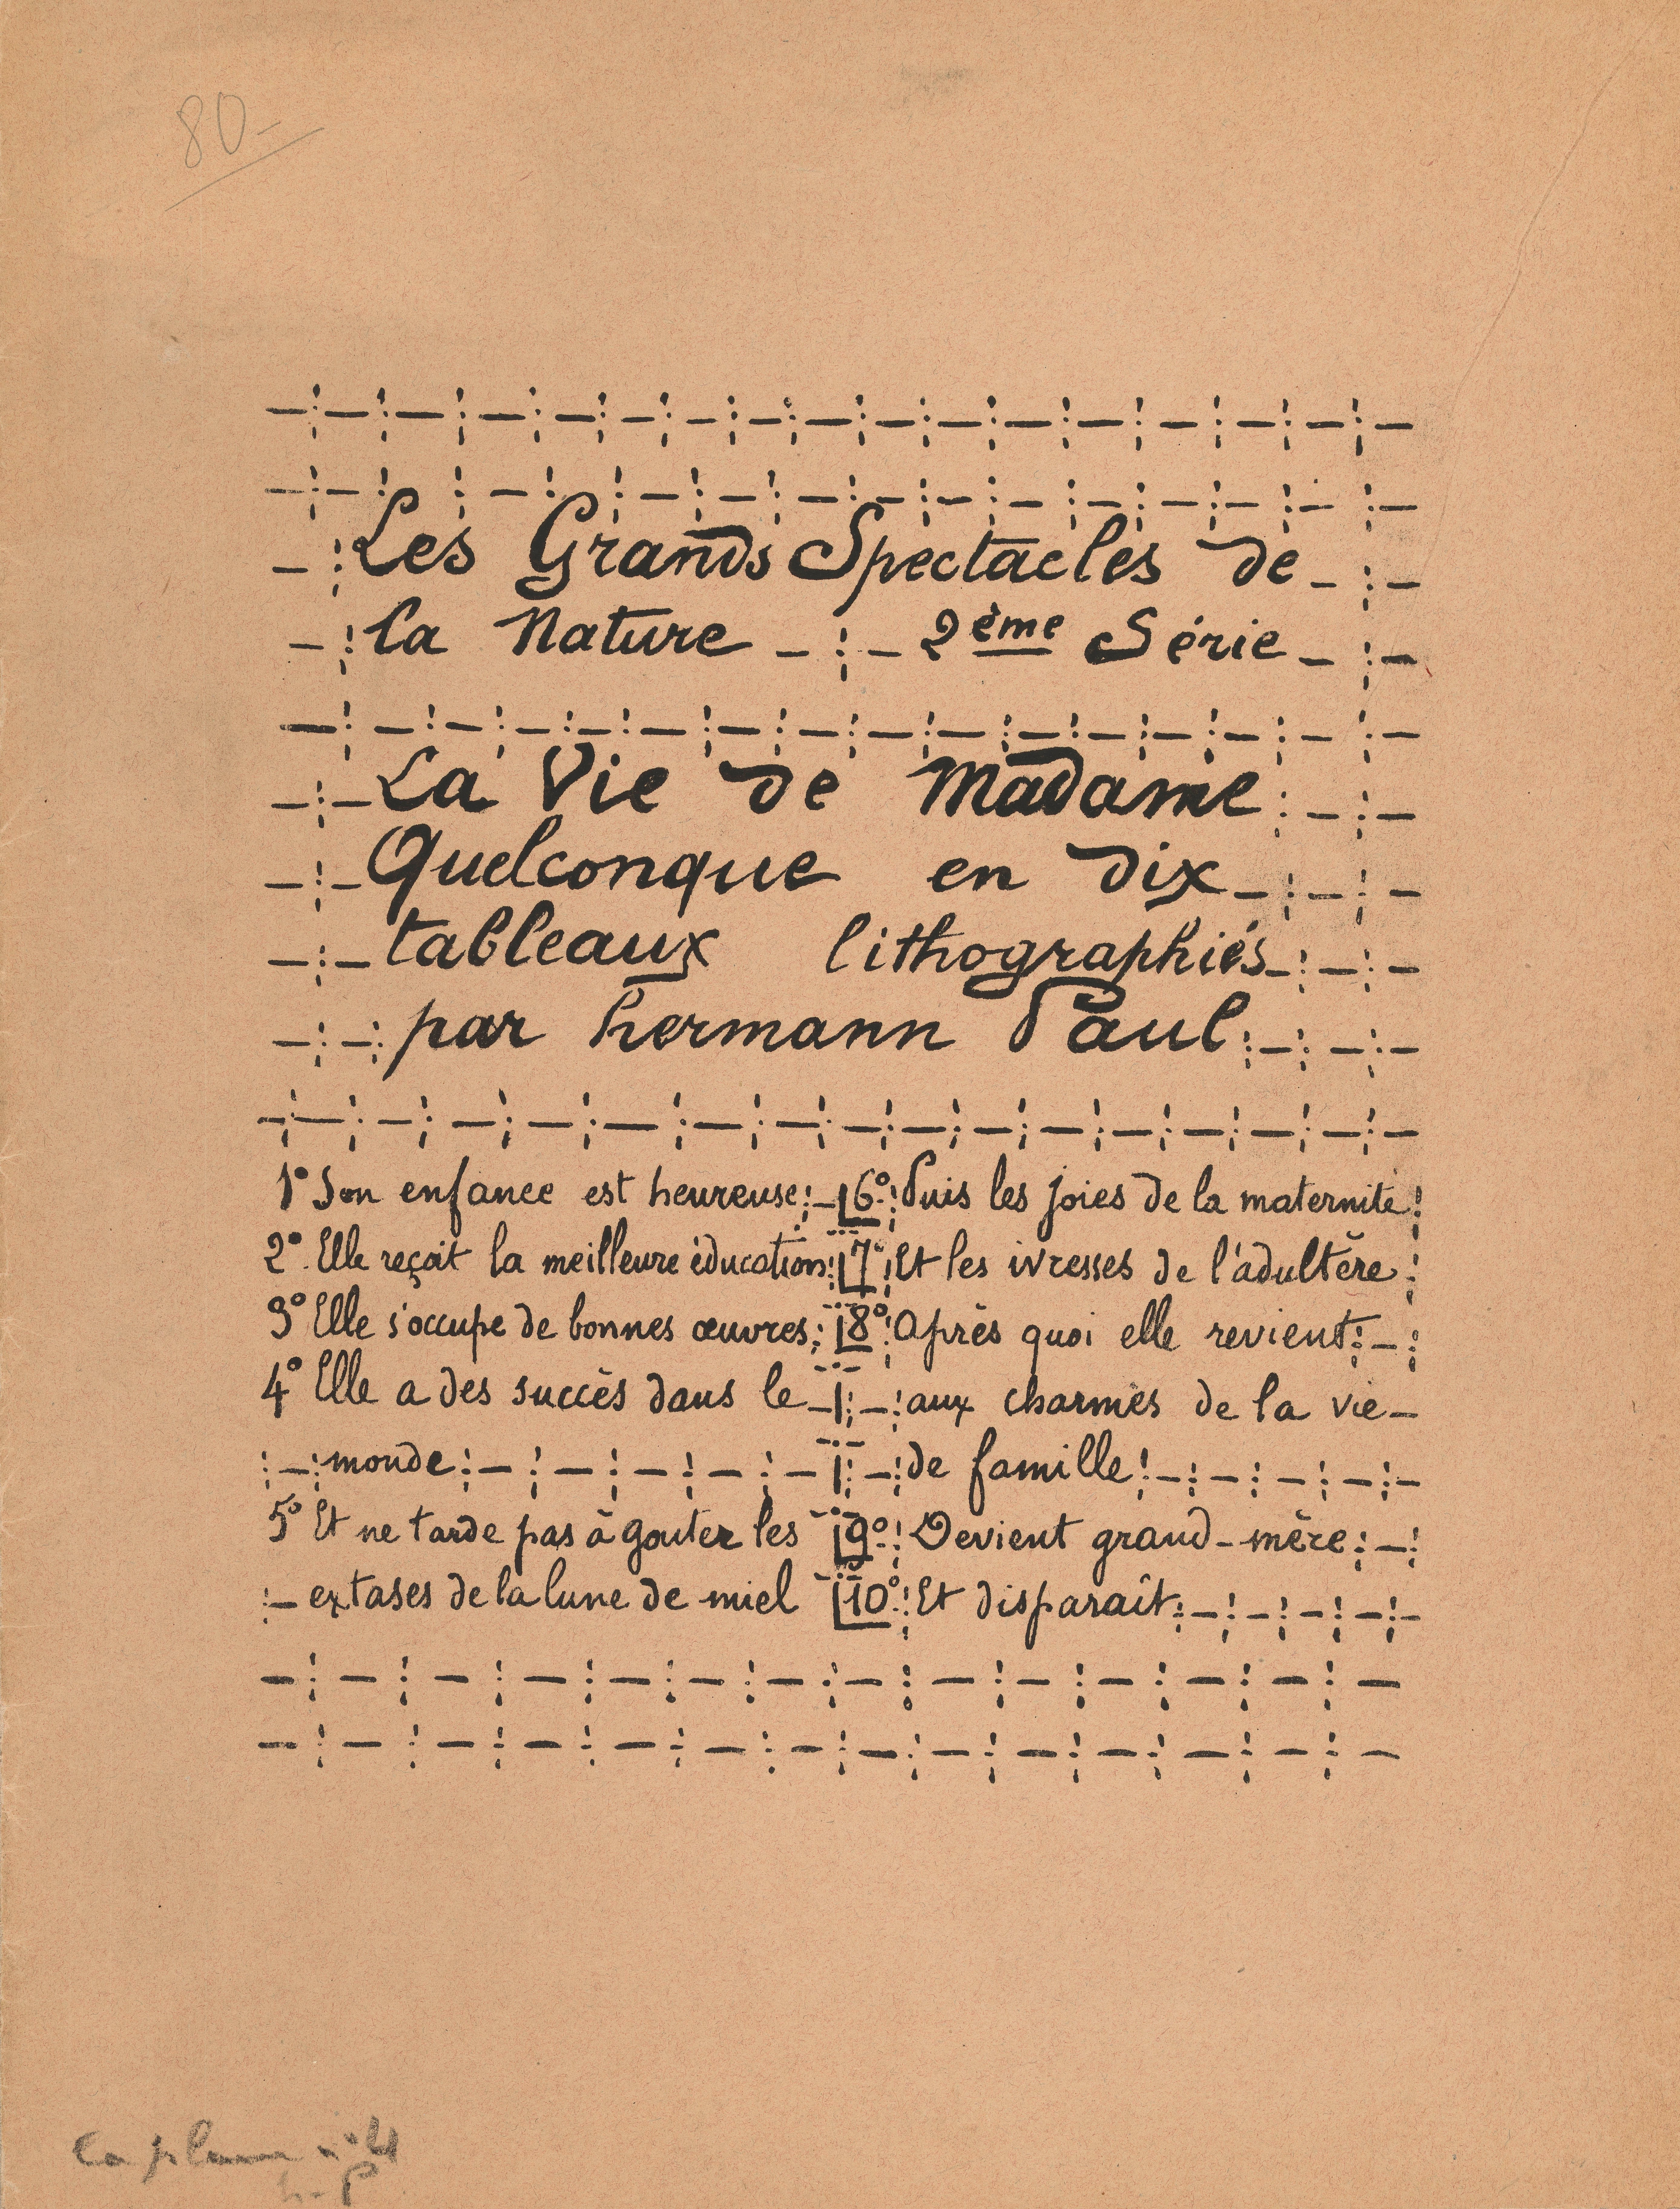 80-
Les Grands Spectacles de
la Nature - 2ème Série
La Vie de Madame
Quelconque en dix
tableaux lithographiés
par hermann Paul
1° Son enfance est heureuse
2° Elle reçoit la meilleure éducation
3° Elle s'occupe de bonnes œuvres
4° Elle a des succès dans le
monde
5° Et ne tarde pas à gouter les
extases de la lune de miel
6° Puis les joies de la maternité
7° Et les ivresses de l'adultère
8° Après quoi elle revient
aux charmes de la vie
de famille
9° Devient grand-mère
10° Et disparaît
la plume n°
h-P